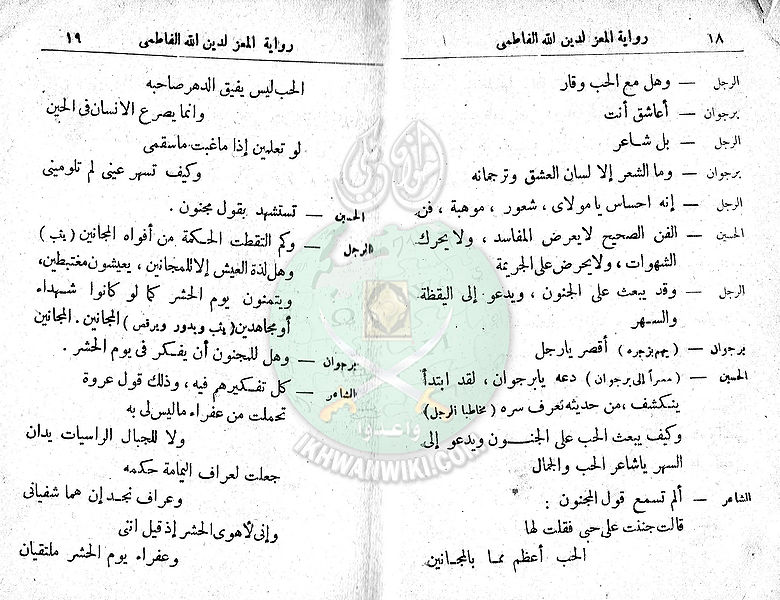 ١٨ رواية المعز لدين الله الفاطمى
الرجل — وهل مع الحب وقار
برجوان — أعاشق أنت
الرجل — بل شاعر
برجوان — وما الشعر إلا لسان العشق وترجمانه
الرجل — إنه احساس يا مولاى ، شعور ، موهبة ، فن
الحسين — الفن الصحيح لا يعرض المفاسد ، ولا يحرك
الشهوات ، ولا يحرض على الجريمة
الرجل — وقد يبعث على الجنون ، ويدعو إلى اليقظة
والسهر
برجوان — ( يهم بزجره ) أقصر يا رجل
الحسين — ( مسراً الى برجوان ) دعه يا برجوان ، لقد ابتدأ
ينكشف ، من حديثه تعرف سره ( مخاطبا الرجل )
وكيف يبعث الحب على الجنون ويدعو إلى
السهر يا شاعر الحب والجمال
الشاعر — ألم تسمع قول المجنون :
قالت جننت على حبى فقلت لها
الحب أعظم مما بالمجانين
رواية المعز لدين الله الفاطمى ١٩
الحب ليس يفيق الدهر صاحبه
وانما يصرع الانسان فى الحين
لو تعلمين إذا ما غبت ما سقمى
وكيف تسهر عينى لم تلومينى
الحسين — تستشهد بقول مجنون .
الرجل — وكم التقطت الحكمة من أفواه المجانين ( يثب )
وهل لذة العيش إلا للمجانين ، يعيشون مغتبطين ،
ويتمنون يوم الحشر كما لو كانوا شهداء
أو مجاهدين ( يثب ويدور ويرقص ) المجانين . المجانين
برجوان — وهل للمجنون أن يفكر فى يوم الحشر .
الشاعر — كل تفكيرهم فيه ، وذلك قول عروة
تحملت من عفراء ما ليس لى به
ولا للجبال الراسيات يدان
جعلت لعراف اليمامة حكمه
وعراف نجد إن هما شفيانى
وإنى لأهوى الحشر إذ قيل اننى
وعفراء يوم الحشر ملتقيان
وأعدوا
IKHWANWIKI.COM